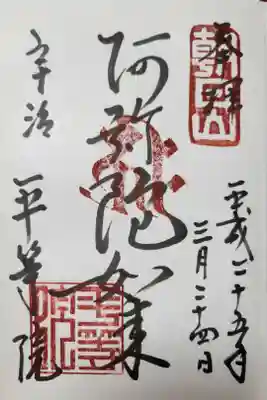 奉拝
朝日山
平成二十五年
三月二十四日
阿弥陀如来
宇治
平等院
平等院